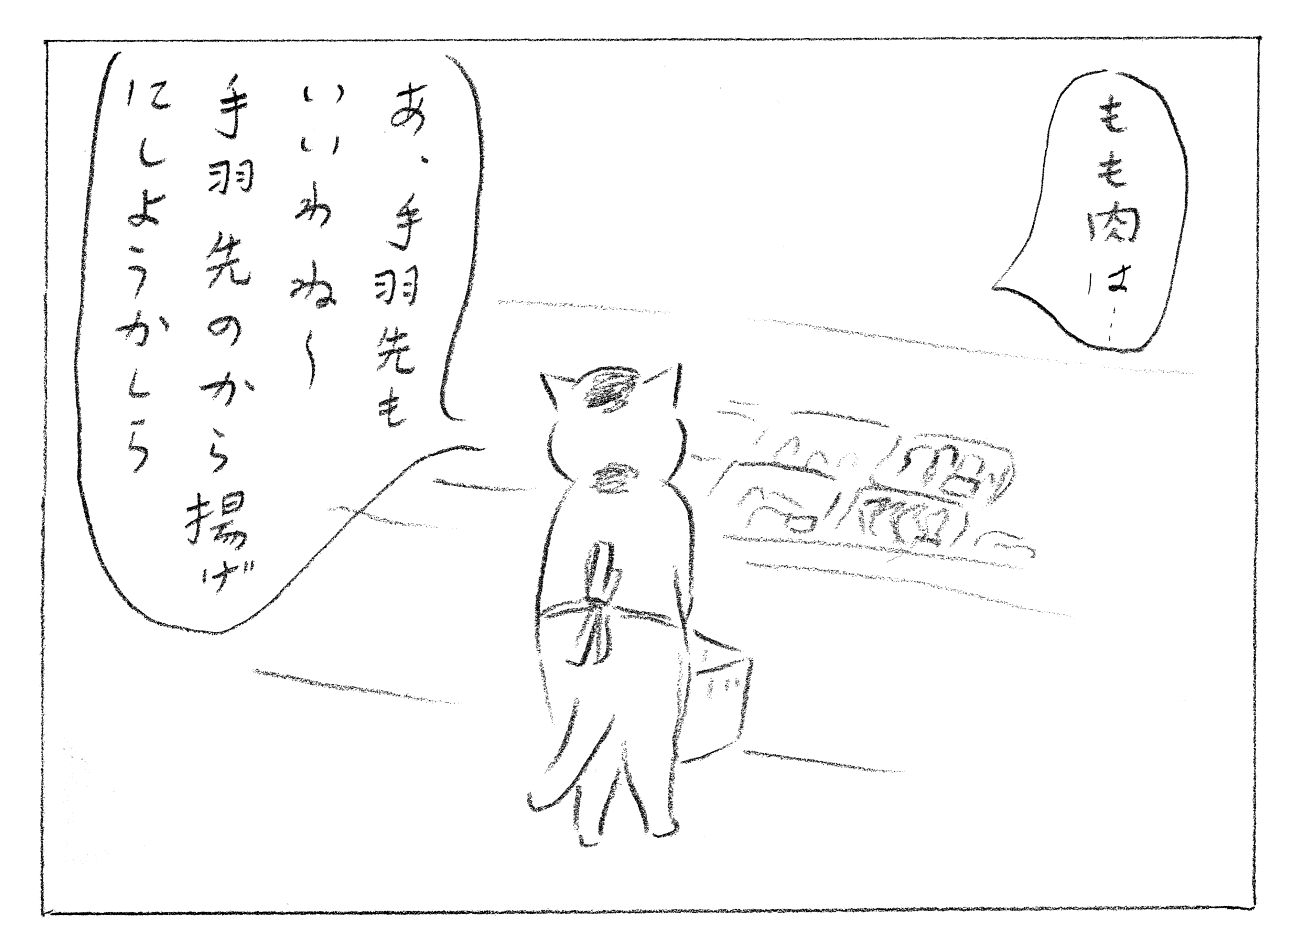 もも肉は…
あ、手羽先も
いいわね〜
手羽先のから揚げ
にしようかしら